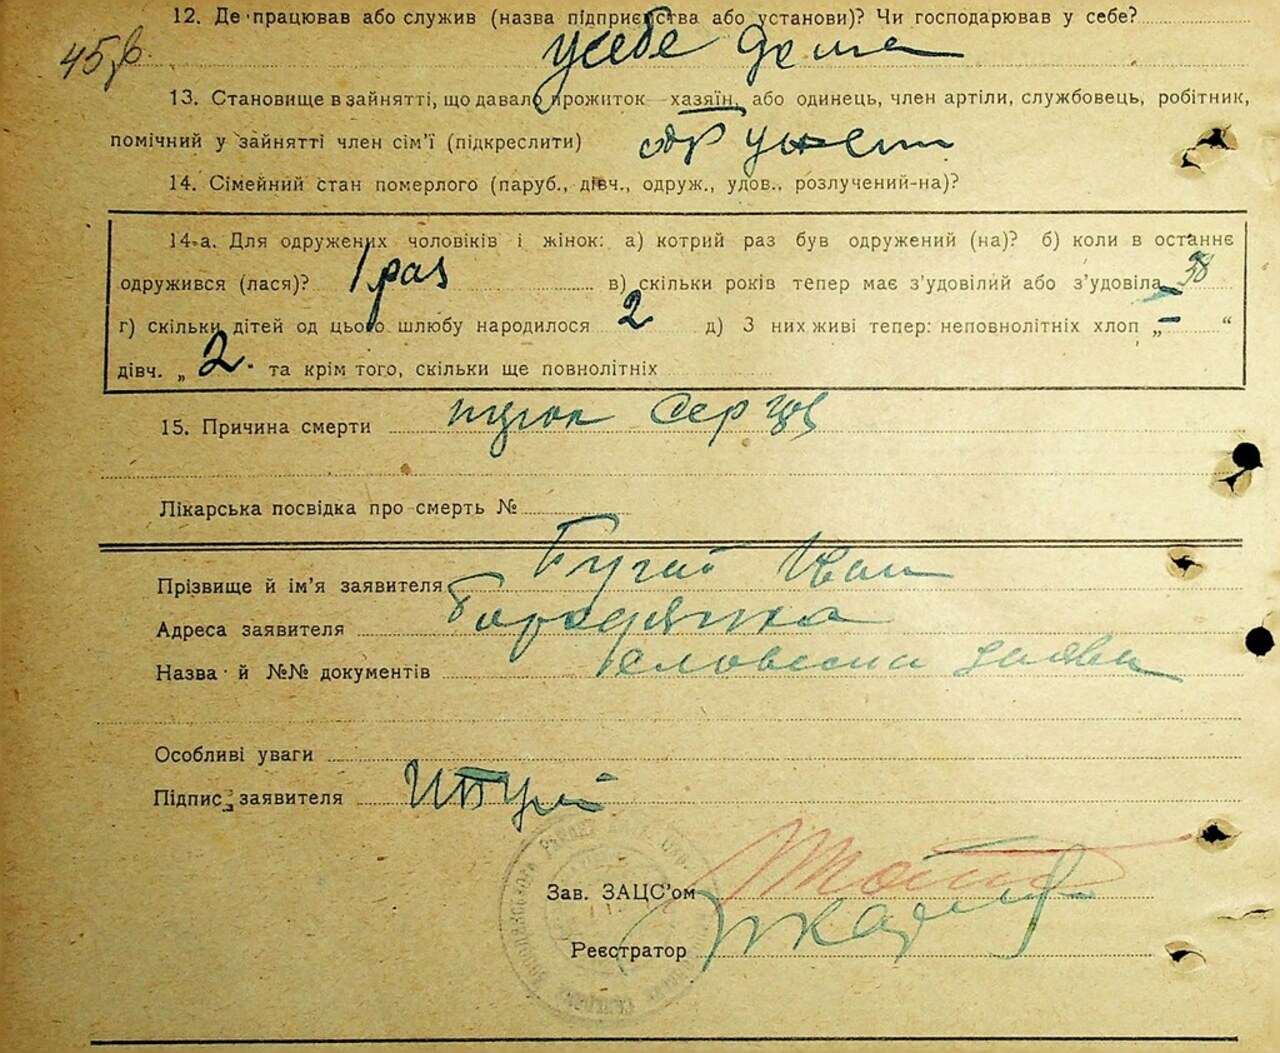 12. Де працював або служив (назва підприємства або установи)? Чи господарював у себе?
у себе дома
13. Становище в зайнятті, що давало прожиток—хазяїн, або одинець, член артіли, службовець, робітник,
помічний у зайнятті член сім’ї (підкреслити)
14. Сімейний стан померлого (паруб., дівч., одруж., удов., розлучений-на)?
14-а. Для одружених чоловіків і жінок: а) котрий раз був одружений (на)? б) коли в останнє
одружився (лася)? 1 раз в) скільки років тепер має з’удовілий або з’удовіла 38
г) скільки дітей од цього шлюбу народилося 2 д) З них живі тепер: неповнолітніх хлоп „ – “
дівч. „ 2. та крім того, скільки ще повнолітніх
15. Причина смерти серця
Лікарська посвідка про смерть №
Прізвище й ім’я заявителя Бугай Іван
Адреса заявителя Бородянка
Назва й №№ документів словесна заява
Особливі уваги
Підпис заявителя
Зав. ЗАЦС’ом
Реєстратор